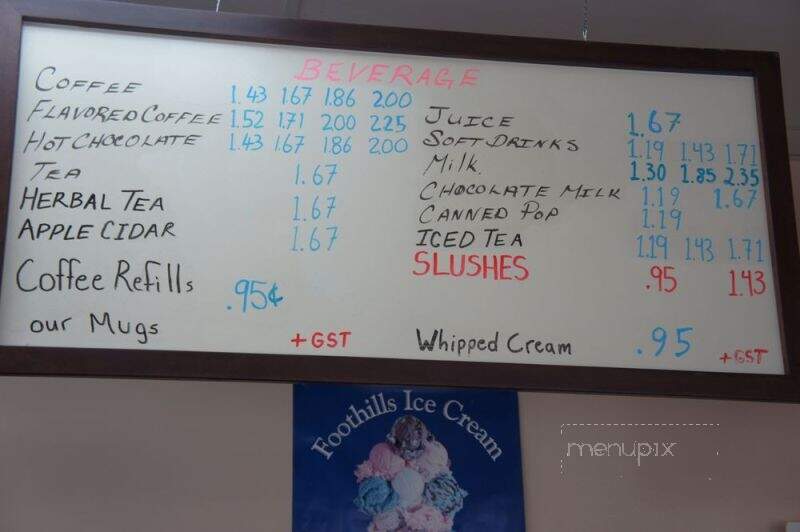 BEVERAGE
COFFEE 1.43 1.67 1.86 2.00
FLAVORED COFFEE 1.52 1.71 2.00 2.25
HOT CHOCOLATE 1.43 1.67 1.86 2.00
TEA 1.67
HERBAL TEA 1.67
APPLE CIDAR 1.67
Coffee Refills .95¢
our Mugs
+ GST
JUICE 1.67
SOFT DRINKS 1.19 1.43 1.71
Milk. 1.30 1.85 2.35
CHOCOLATE MILK 1.19 1.67
CANNED POP 1.19
ICED TEA 1.19 1.43 1.71
SLUSHES .95 1.43
Whipped Cream .95
+ GST
Foothills Ice Cream
menupix